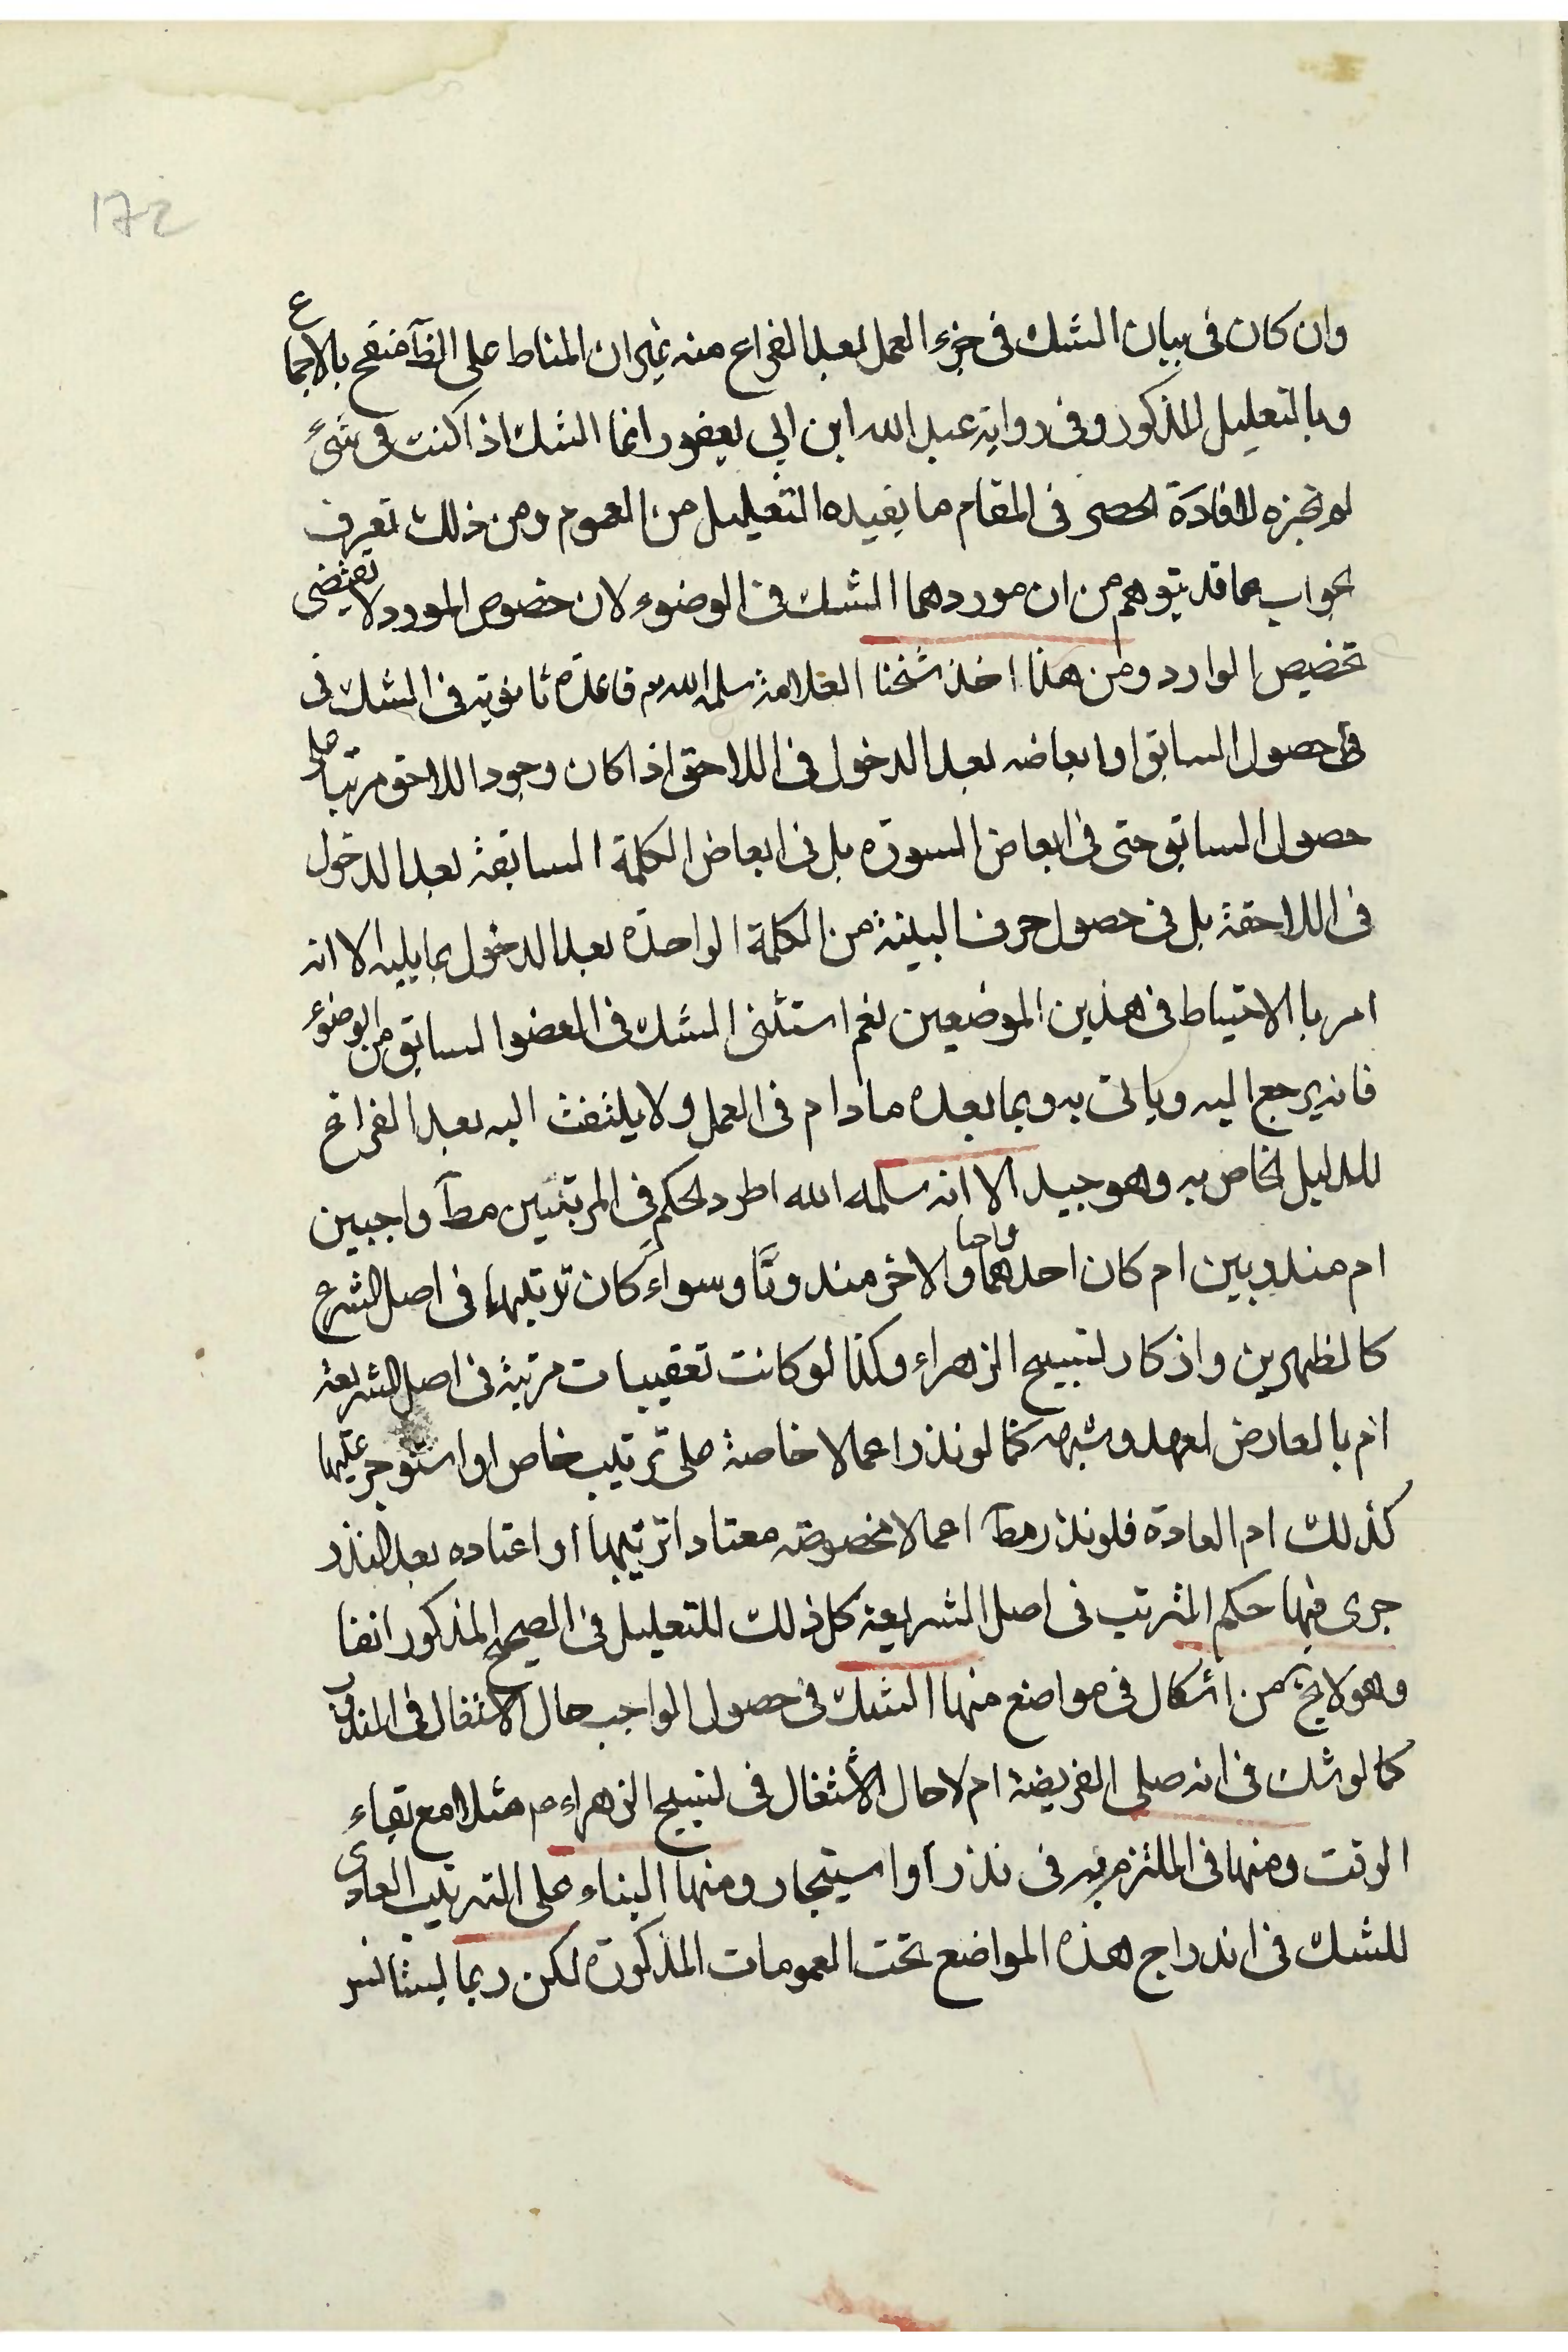 172
وان كان فى بيان الشك فى جزء العمل بعد الفراغ منه غير ان المناط على الظآ منقح بالاجماع
وبالتعليل المذكور وفى رواية عبد الله ابن ابي يعفور انما الشك اذا كنت فى شئ
لم تجزه لافادة الحصر فى المقام ما يفيده التعليل من العموم ومن ذلك تعرف
الجواب عما قد يتوهم من ان موردهما الشك فى الوضوء لان خصوص المورد لا يقتضى
تخصيص الوارد ومن هنا اخذ شيخنا العلامة سلمه الله قاعدة ثانوية فى الشك فى
فى حصول السابق او ابعاضه بعد الدخول فى اللاحق اذا كان وجود اللاحق مرتبا على
حصول السابق حتى فى ابعاض السورة بل فى ابعاض الكلمة السابقة بعد الدخول
فى اللاحقة بل فى حصول حرف البينة من الكلمة الواحدة بعد الدخول بما يليه الا انه
امر بالاحتياط فى هذين الموضعين نعم استثنى الشك فى العضو السابق من الوضوء
فانه يرجع اليه وياتى به وبما بعده مادام فى العمل ولا يلتفت اليه بعد الفراغ
للدليل الخاص به وهو جيد الا انه سلمه الله اطرد الحكم فى المرتبين مطآ واجبين
ام مندوبين ام كان احدهما واجبا والاخر مندوبًا وسواء كان ترتبهما فى اصل الشرع
كالظهرين واذكار تسبيح الزهراء وكذا لو كانت تعقيبات مرتبة فى اصل الشريعة
ام بالعارض لعهد وشبهه كما لو نذر اعمالا خاصة على ترتيب خاص او استوجر عليها
كذلك ام العادة فلو نذر مطآ اعمالا مخصوصة معتادا ترتيبها او اعتاده بعد النذر
جرى فيها حكم المترتب فى اصل الشريعة كل ذلك للتعليل فى الصحيح المذكور انفا
وهو لا يخ من اشكال فى مواضع منها الشك فى حصول الواجب حال الاشتغال فى المندوب
كما لو شك فى انه صلى الفريضة ام لا حال الاشتغال فى تسبيح الزهراء ع مثلا مع بقاء
الوقت ومنها فى الملتزم به فى نذر او استيجار ومنها البناء على الترتيب العادى
للشك فى اندراج هذه المواضع تحت العمومات المذكورة لكن ربما يستانس